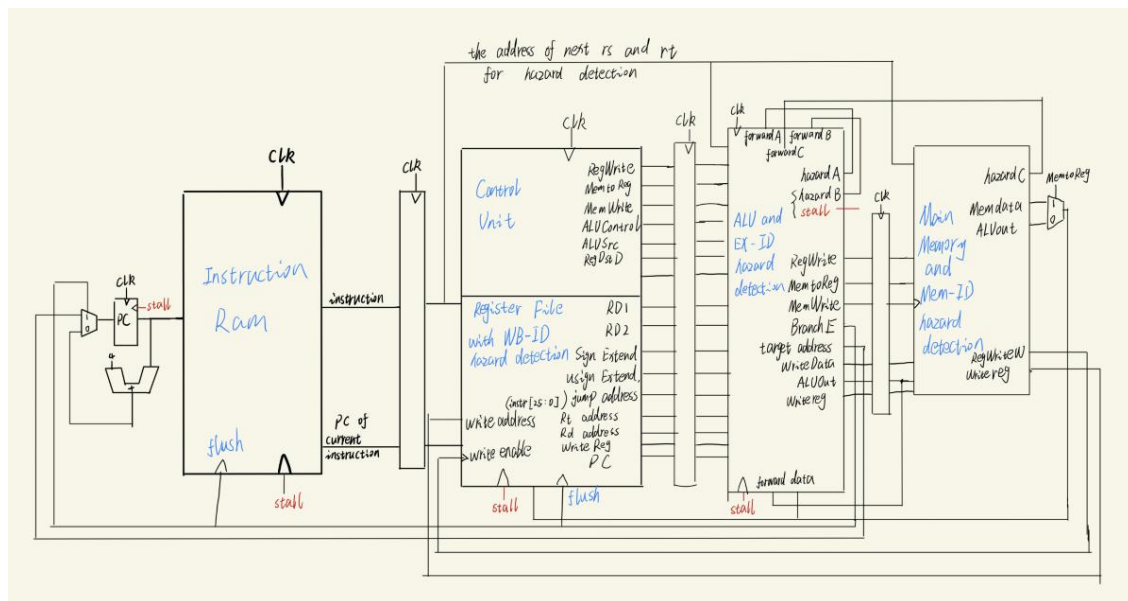 the address of next rs and rt
for hazard detection
Clk
stall
PC
1
0
4
+
Clk
Instruction
Ram
flush
stall
instruction
PC of
current
instruction
Clk
Clk
Control
Unit
RegWrite
MemtoReg
MemWrite
ALUControl
ALUSrc
RegDstD
Register File
with WB-ID
hazard detection
RD1
RD2
Sign Extend
usign Extend
(instr[25:0]) jump address
write address
Rt address
Rd address
Write Reg
write enable
PC
stall
flush
Clk
Clk
forwardA
forwardB
forwardC
hazardA
hazardB
stall
ALU and
EX-ID
hazard
detection
RegWrite
MemtoReg
MemWrite
BranchE
target address
WriteData
ALUOut
Writereg
forward data
stall
Clk
Main
Memory
and
Mem-ID
hazard
detection
hazardC
Memdata
ALUout
RegWriteW
Writereg
MemtoReg
1
0